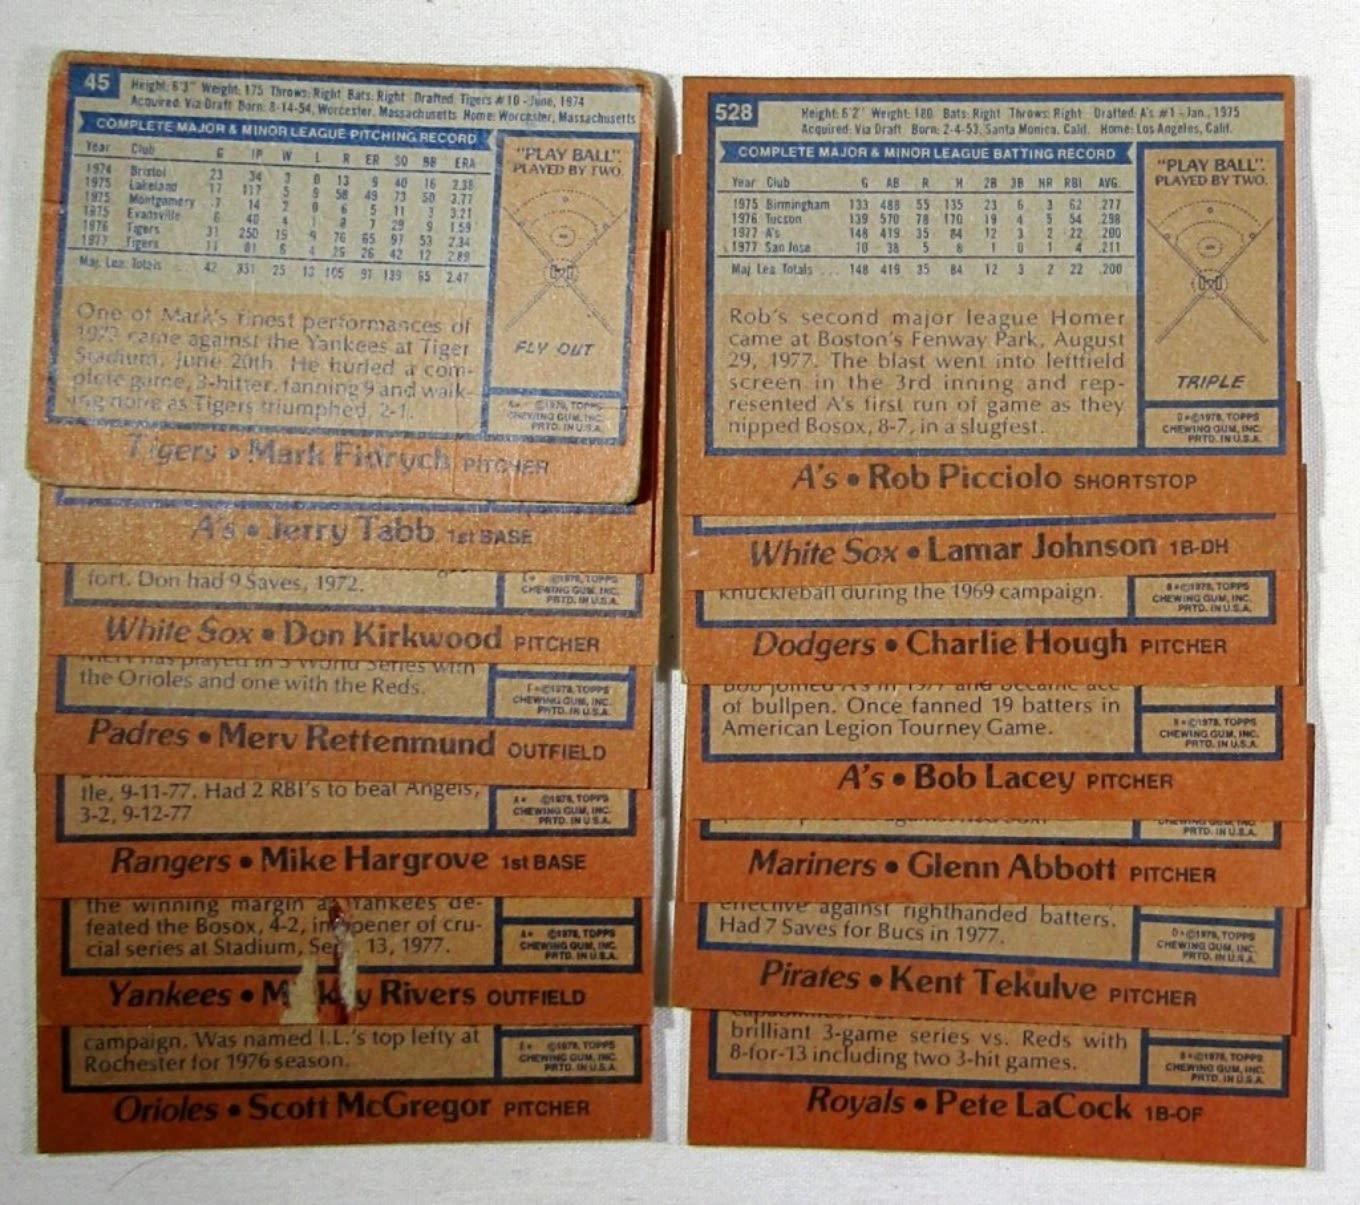 45
Height: 6'3" Weight: 175 Throws: Right Bats: Right Drafted: Tigers #10 - June, 1974
Acquired: Via Draft Born: 8-14-54, Worcester, Massachusetts Home: Worcester, Massachusetts
COMPLETE MAJOR & MINOR LEAGUE PITCHING RECORD
Year Club G IP W L R ER SO BB ERA
1974 Bristol 23 34 3 0 13 9 40 16 2.38
1975 Lakeland 17 117 5 9 58 49 73 50 3.77
1975 Montgomery 7 14 2 0 6 5 11 3 3.21
1975 Evansville 6 40 4 1 8 7 29 9 1.59
1976 Tigers 31 250 19 9 76 65 97 53 2.34
1977 Tigers 11 81 6 4 29 26 42 12 2.89
Maj. Lea. Totals 42 331 25 13 105 91 139 65 2.47
"PLAY BALL".
PLAYED BY TWO.
FLY OUT
One of Mark's finest performances of
1973 came against the Yankees at Tiger
Stadium, June 20th. He hurled a com-
plete game, 3-hitter, fanning 9 and walk-
ing none as Tigers triumphed, 2-1.
©1978, TOPPS
CHEWING GUM, INC.
PRTD. IN U.S.A.
Tigers • Mark Fidrych PITCHER
A's • Jerry Tabb 1st BASE
fort. Don had 9 Saves, 1972.
©1978, TOPPS
CHEWING GUM, INC.
PRTD. IN U.S.A.
White Sox • Don Kirkwood PITCHER
Merv has played in 3 World Series with
the Orioles and one with the Reds.
©1978, TOPPS
CHEWING GUM, INC.
PRTD. IN U.S.A.
Padres • Merv Rettenmund OUTFIELD
tle, 9-11-77. Had 2 RBI's to beat Angels,
3-2, 9-12-77
©1978, TOPPS
CHEWING GUM, INC.
PRTD. IN U.S.A.
Rangers • Mike Hargrove 1st BASE
the winning margin as Yankees de-
feated the Bosox, 4-2, in opener of cru-
cial series at Stadium, Se 13, 1977.
©1978, TOPPS
CHEWING GUM, INC.
PRTD. IN U.S.A.
Yankees • M k y Rivers OUTFIELD
campaign. Was named I.L.'s top lefty at
Rochester for 1976 season.
©1978, TOPPS
CHEWING GUM, INC.
PRTD. IN U.S.A.
Orioles • Scott McGregor PITCHER
528
Height: 6'2" Weight: 180 Bats: Right Throws: Right Drafted: A's #1 - Jan., 1975
Acquired: Via Draft Born: 2-4-53, Santa Monica, Calif. Home: Los Angeles, Calif.
COMPLETE MAJOR & MINOR LEAGUE BATTING RECORD
Year Club G AB R H 2B 3B HR RBI AVG.
1975 Birmingham 133 488 55 135 23 6 3 62 .277
1976 Tucson 139 570 78 170 19 4 5 54 .298
1977 A's 148 419 35 84 12 3 2 22 .200
1977 San Jose 10 38 5 8 1 0 1 4 .211
Maj. Lea. Totals ... 148 419 35 84 12 3 2 22 .200
"PLAY BALL".
PLAYED BY TWO.
TRIPLE
Rob's second major league Homer
came at Boston's Fenway Park, August
29, 1977. The blast went into leftfield
screen in the 3rd inning and rep-
resented A's first run of game as they
nipped Bosox, 8-7, in a slugfest.
D*©1978, TOPPS
CHEWING GUM, INC.
PRTD. IN U.S.A.
A's • Rob Picciolo SHORTSTOP
White Sox • Lamar Johnson 1B-DH
knuckleball during the 1969 campaign.
©1978, TOPPS
CHEWING GUM, INC.
PRTD. IN U.S.A.
Dodgers • Charlie Hough PITCHER
Bob joined A's in 1977 and became ace
of bullpen. Once fanned 19 batters in
American Legion Tourney Game.
©1978, TOPPS
CHEWING GUM, INC.
PRTD. IN U.S.A.
A's • Bob Lacey PITCHER
CHEWING GUM, INC.
PRTD. IN U.S.A.
Mariners • Glenn Abbott PITCHER
effective against righthanded batters.
Had 7 Saves for Bucs in 1977.
D*©1978, TOPPS
CHEWING GUM, INC.
PRTD. IN U.S.A.
Pirates • Kent Tekulve PITCHER
brilliant 3-game series vs. Reds with
8-for-13 including two 3-hit games.
©1978, TOPPS
CHEWING GUM, INC.
PRTD. IN U.S.A.
Royals • Pete LaCock 1B-OF